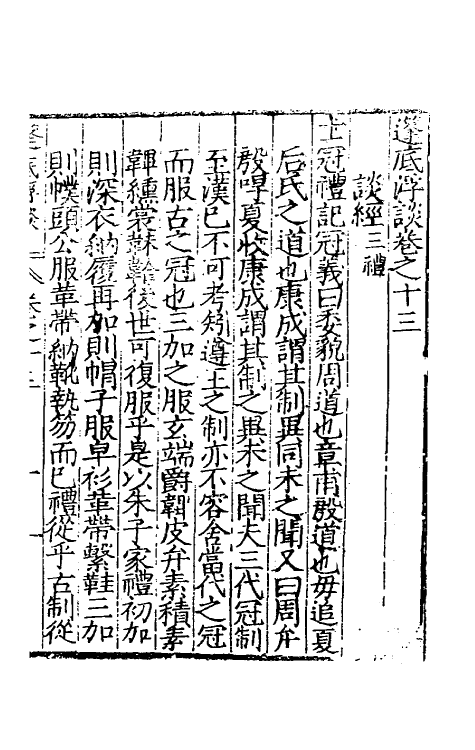 蓬底浮談卷之十三
談經三禮
士冠禮記冠義曰委貌周道也章甫殷道也毋追夏
后氏之道也康成謂其制異同未之聞又曰周弁
殷冔夏收康成謂其制之異未之聞夫三代冠制
至漢已不可考矧遵王之制亦不容舍當代之冠
而服古之冠也三加之服玄端爵韠皮弁素積素
韠纁裳韎韐後世可復服乎是以朱子家禮初加
則深衣納履再加則帽子服皁衫革帶繫鞋三加
則幞頭公服革帶納靴執笏而已禮從乎古制從